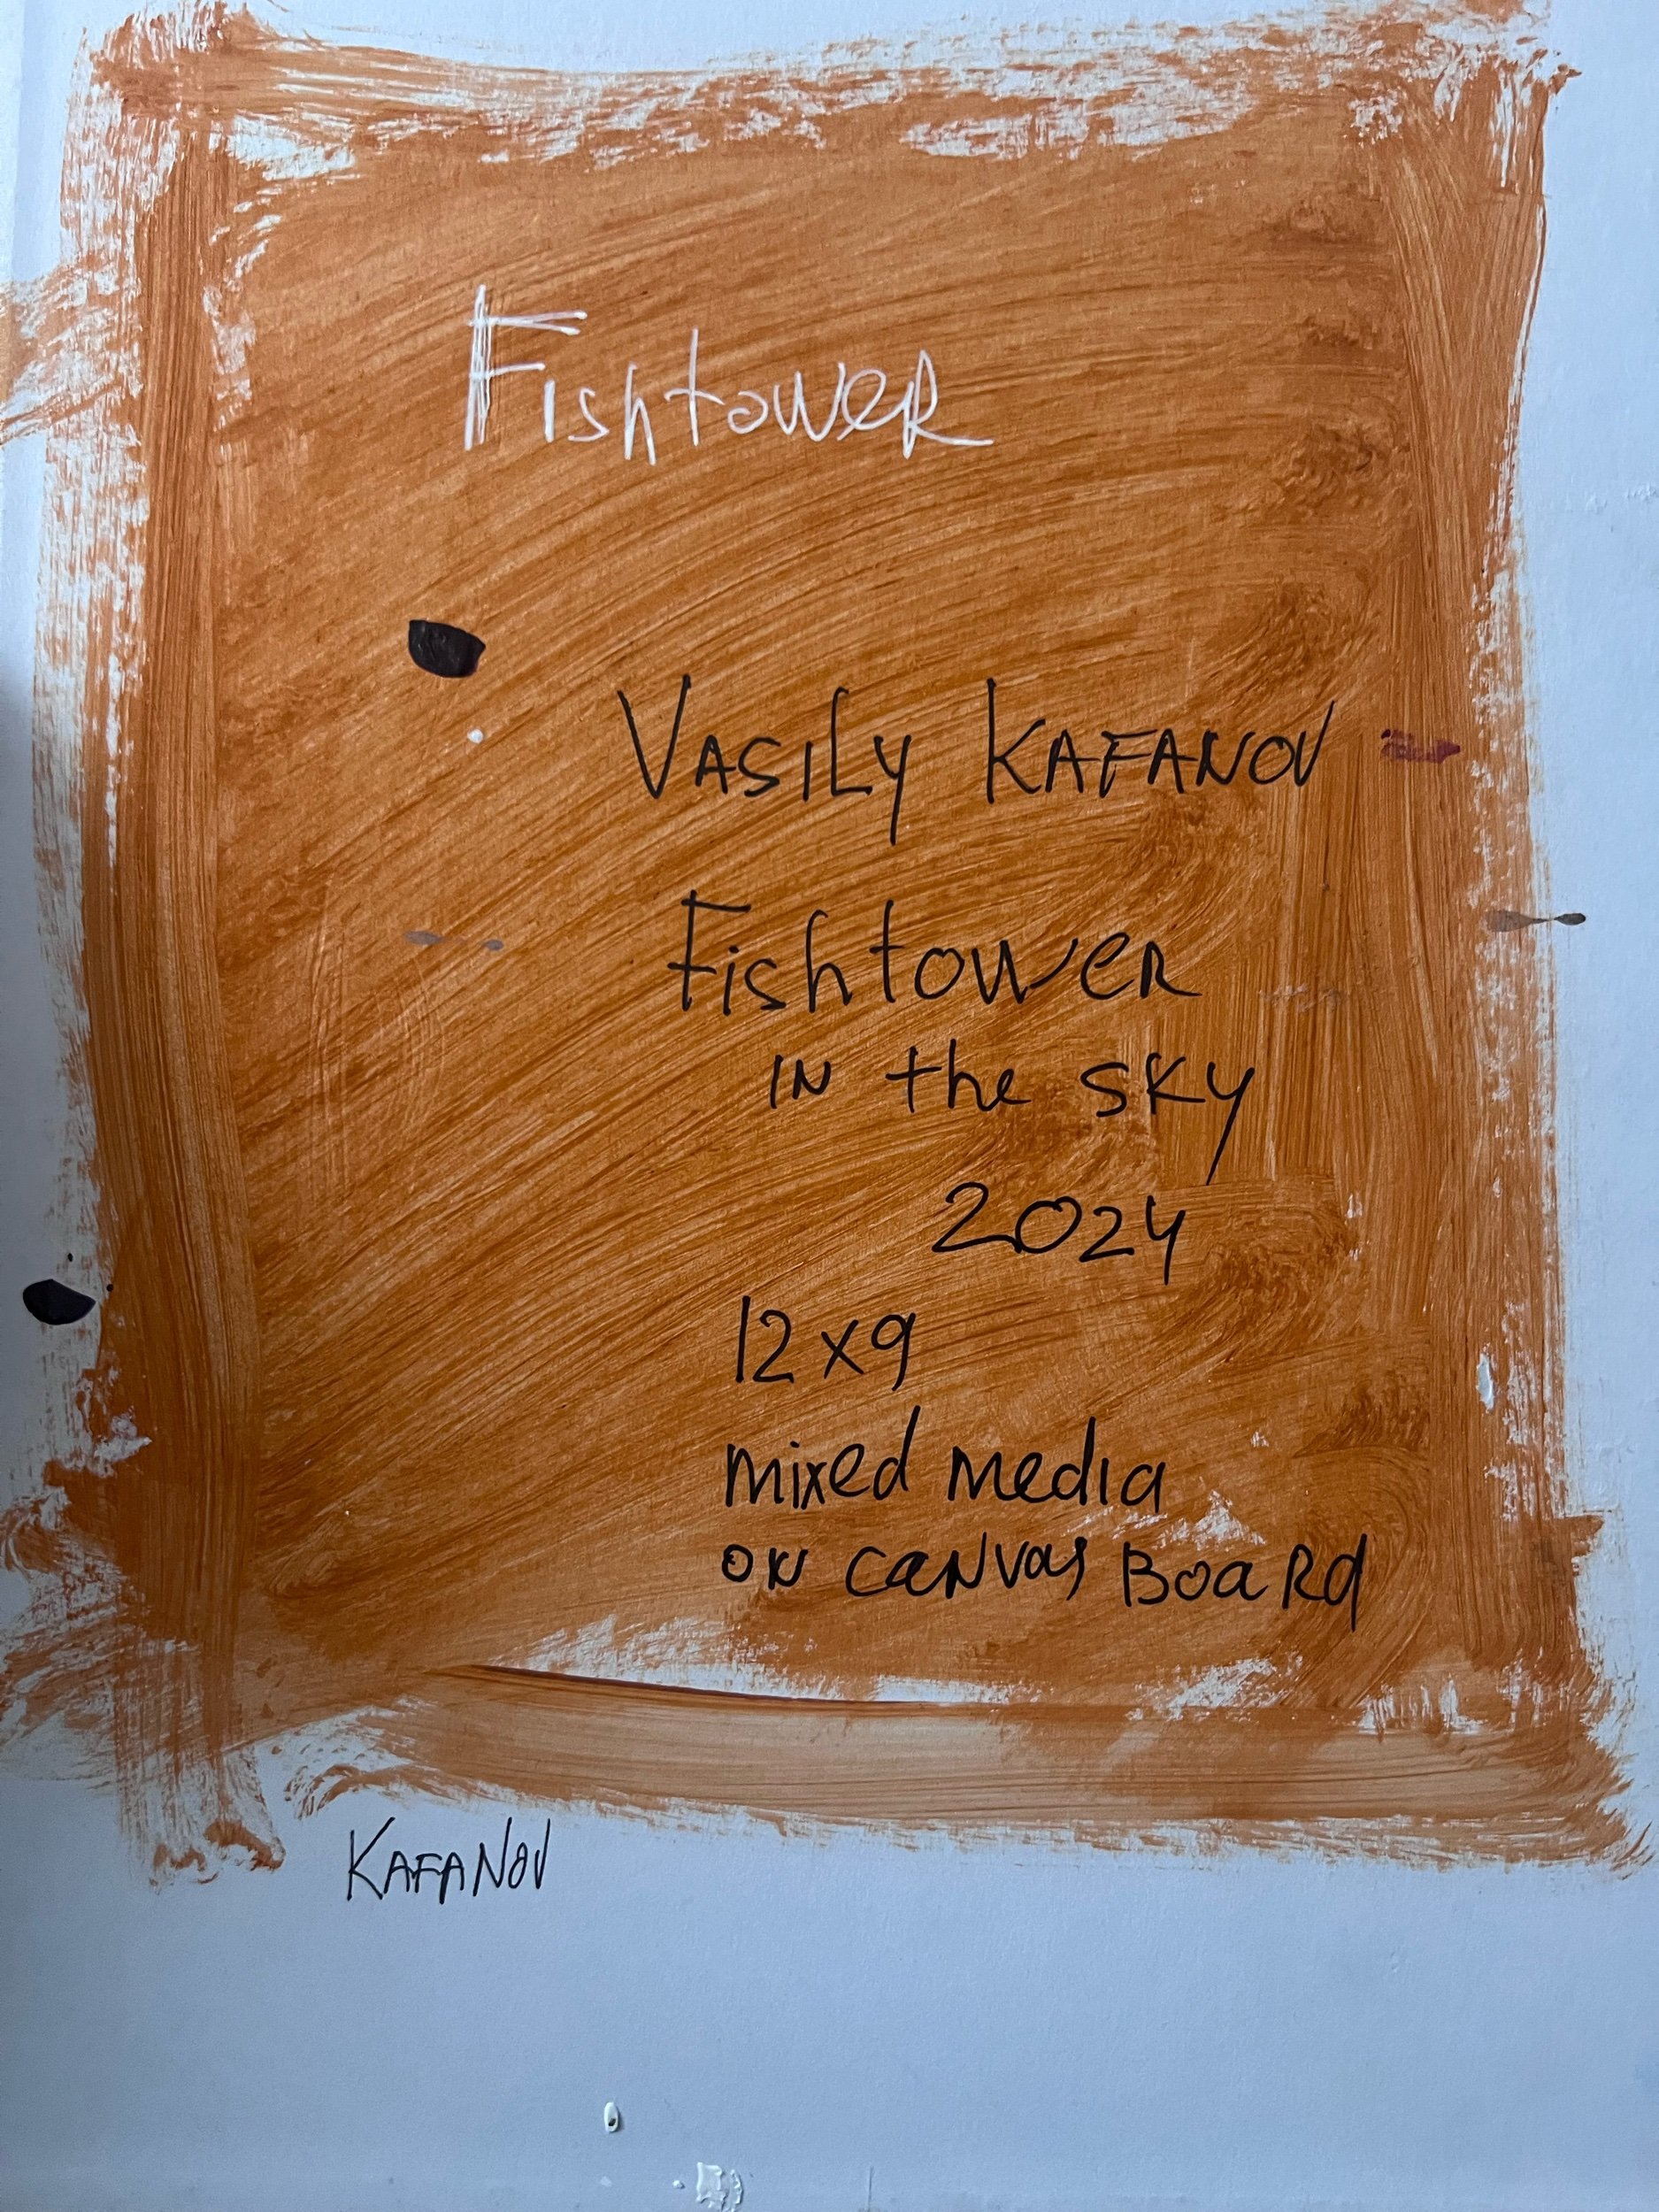 Fishtower
VASILY KAFANOV
Fishtower
IN the SKY
2024
12x9
mixed media
on canvas Board
KAFANOV